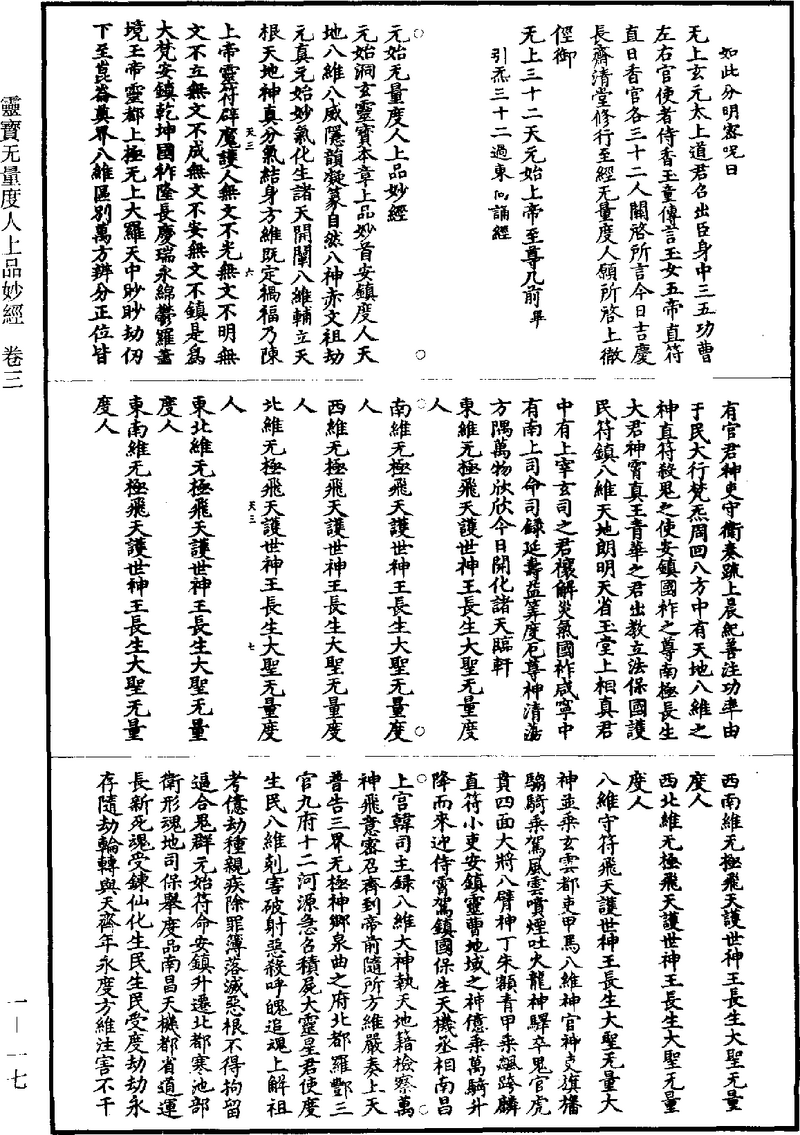 如此分明密呪曰
无上玄元太上道君召出臣身中三五功曹
左右官使者侍香玉童傳言玉女五帝直符
直日香官各三十二人關啓所言今日吉慶
長齋清堂修行至經无量度人願所啓上徹
徑御
无上三十二天元始上帝至尊几前畢
引炁三十二過東向誦經
元始无量度人上品妙經
元始洞玄靈寶本章上品妙首安鎮度人天
地八維八威隱韻凝篆自然八神赤文祖劫
元真元始妙氣化生諸天開闡八維輔立天
根天地神真分氣結身方維既定禍福乃陳
天三
六
上帝靈符辟魔護人無文不光無文不明無
文不立無文不成無文不安無文不鎮是爲
大梵安鎮乾坤國祚隆長慶瑞永綿鬱羅蕭
境玉帝靈都上極无上大羅天中眇眇劫仞
下至崑崙奠界八維區別萬方辨分正位皆
有官君神吏守衛奏疏上晨紀善注功率由
于民大行梵炁周回八方中有天地八維之
神直符殺鬼之使安鎮國祚之尊南極長生
大君神霄真王青華之君出教立法保國護
民符鎮八維天地朗明天省玉堂上相真君
中有上宰玄司之君禳解災氣國祚咸寧中
有南上司命司録延壽益筭度厄尊神清蕩
方隅萬物欣欣今日開化諸天臨軒
東維无極飛天護世神王長生大聖无量度
人
南維无極飛天護世神王長生大聖无量度
人
西維无極飛天護世神王長生大聖无量度
人
北維无極飛天護世神王長生大聖无量度
天三
七
人
東北維无極飛天護世神王長生大聖无量
度人
東南維无極飛天護世神王長生大聖无量
度人
西南維无極飛天護世神王長生大聖无量
度人
西北維无極飛天護世神王長生大聖无量
度人
八維守符飛天護世神王長生大聖无量大
神並乘玄雲都吏甲馬八維神官神吏旗旛
騶騎乘駕風雲噴煙吐火龍神驛卒鬼官虎
賁四面大將八臂神丁朱額青甲乘飆跨麟
直符小吏安鎮靈曹地域之神億乘萬騎升
降而來迎侍霄駕鎮國保生天機丞相南昌
上宫韓司主録八維大神執天地籍檢察萬
神飛意密召齊到帝前隨所方維嚴奏上天
普告三界无極神鄉泉曲之府北都羅酆三
官九府十二河源急召積屍大靈星君使度
生民八維剋害破射惡殺呼魄追魂上解祖
考億劫種親疾除罪簿落滅惡根不得拘留
逼合鬼群元始符命安鎮升遷北都寒池部
衛形魂地司保舉度品南昌天機都省道運
長新死魂受鍊仙化生民生民受度劫劫永
存隨劫輪轉與天齊年永度方維注害不干
靈寶无量度人上品妙經　卷三
一—一七